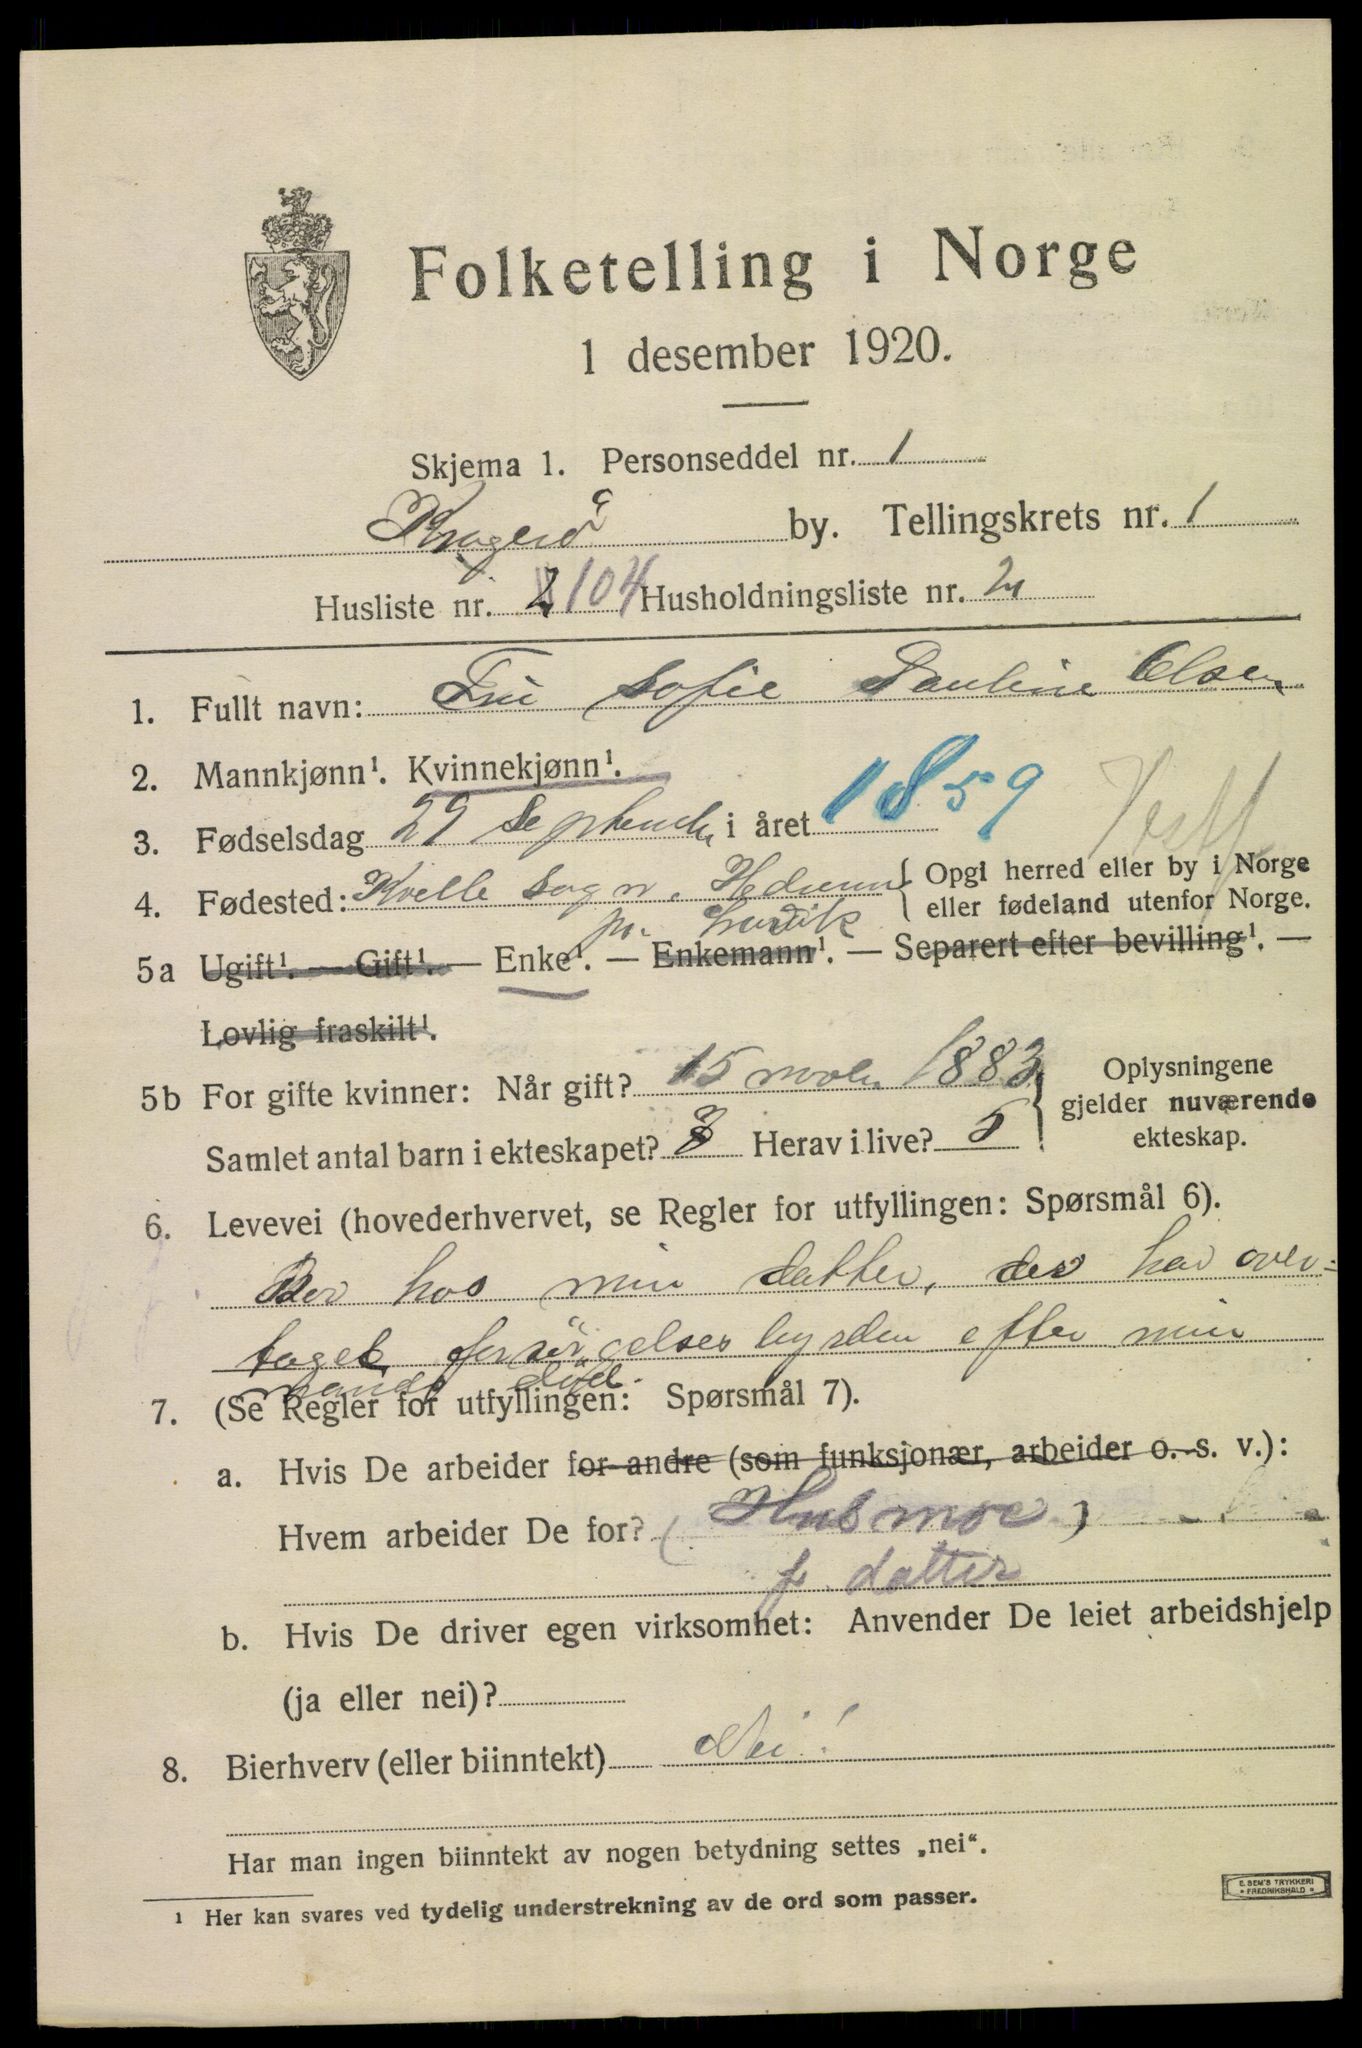 Folketelling i Norge
1 desember 1920.
Skjema 1. Personseddel nr. 1
Kragerø by. Tellingskrets nr. 1
Husliste nr. 2 104 Husholdningsliste nr. 2
1. Fullt navn: Fru Sofie Pauline Olsen
2. Mannkjønn¹. Kvinnekjønn¹.
3. Fødselsdag 29 September i året 1859 Vestf
4. Fødested: Kvelle Sogn. Hedrum { Opgi herred eller by i Norge
pr. Larvik eller fødeland utenfor Norge.
5a Ugift¹. — Gift¹. — Enke¹. — Enkemann¹. — Separert efter bevilling¹. —
Lovlig fraskilt¹.
5b For gifte kvinner: Når gift? 15 novbr. 1883 } Oplysningene
gjelder nuværende
Samlet antal barn i ekteskapet? 8 Herav i live? 5 ekteskap.
6. Levevei (hovederhvervet, se Regler for utfyllingen: Spørsmål 6).
Bor hos min datter, der har over-
taget forsörgelsesbyrden efter min
mands död.
7. (Se Regler for utfyllingen: Spørsmål 7).
a. Hvis De arbeider for andre (som funksjonær, arbeider o. s. v.):
Hvem arbeider De for? (Husmor)
f. datter
b. Hvis De driver egen virksomhet: Anvender De leiet arbeidshjelp
(ja eller nei)?
8. Bierhverv (eller biinntekt) Nei!
Har man ingen biinntekt av nogen betydning settes „nei“.
1 Her kan svares ved tydelig understrekning av de ord som passer.
E. SEM'S TRYKKERI
* FREDRIKSHALD *